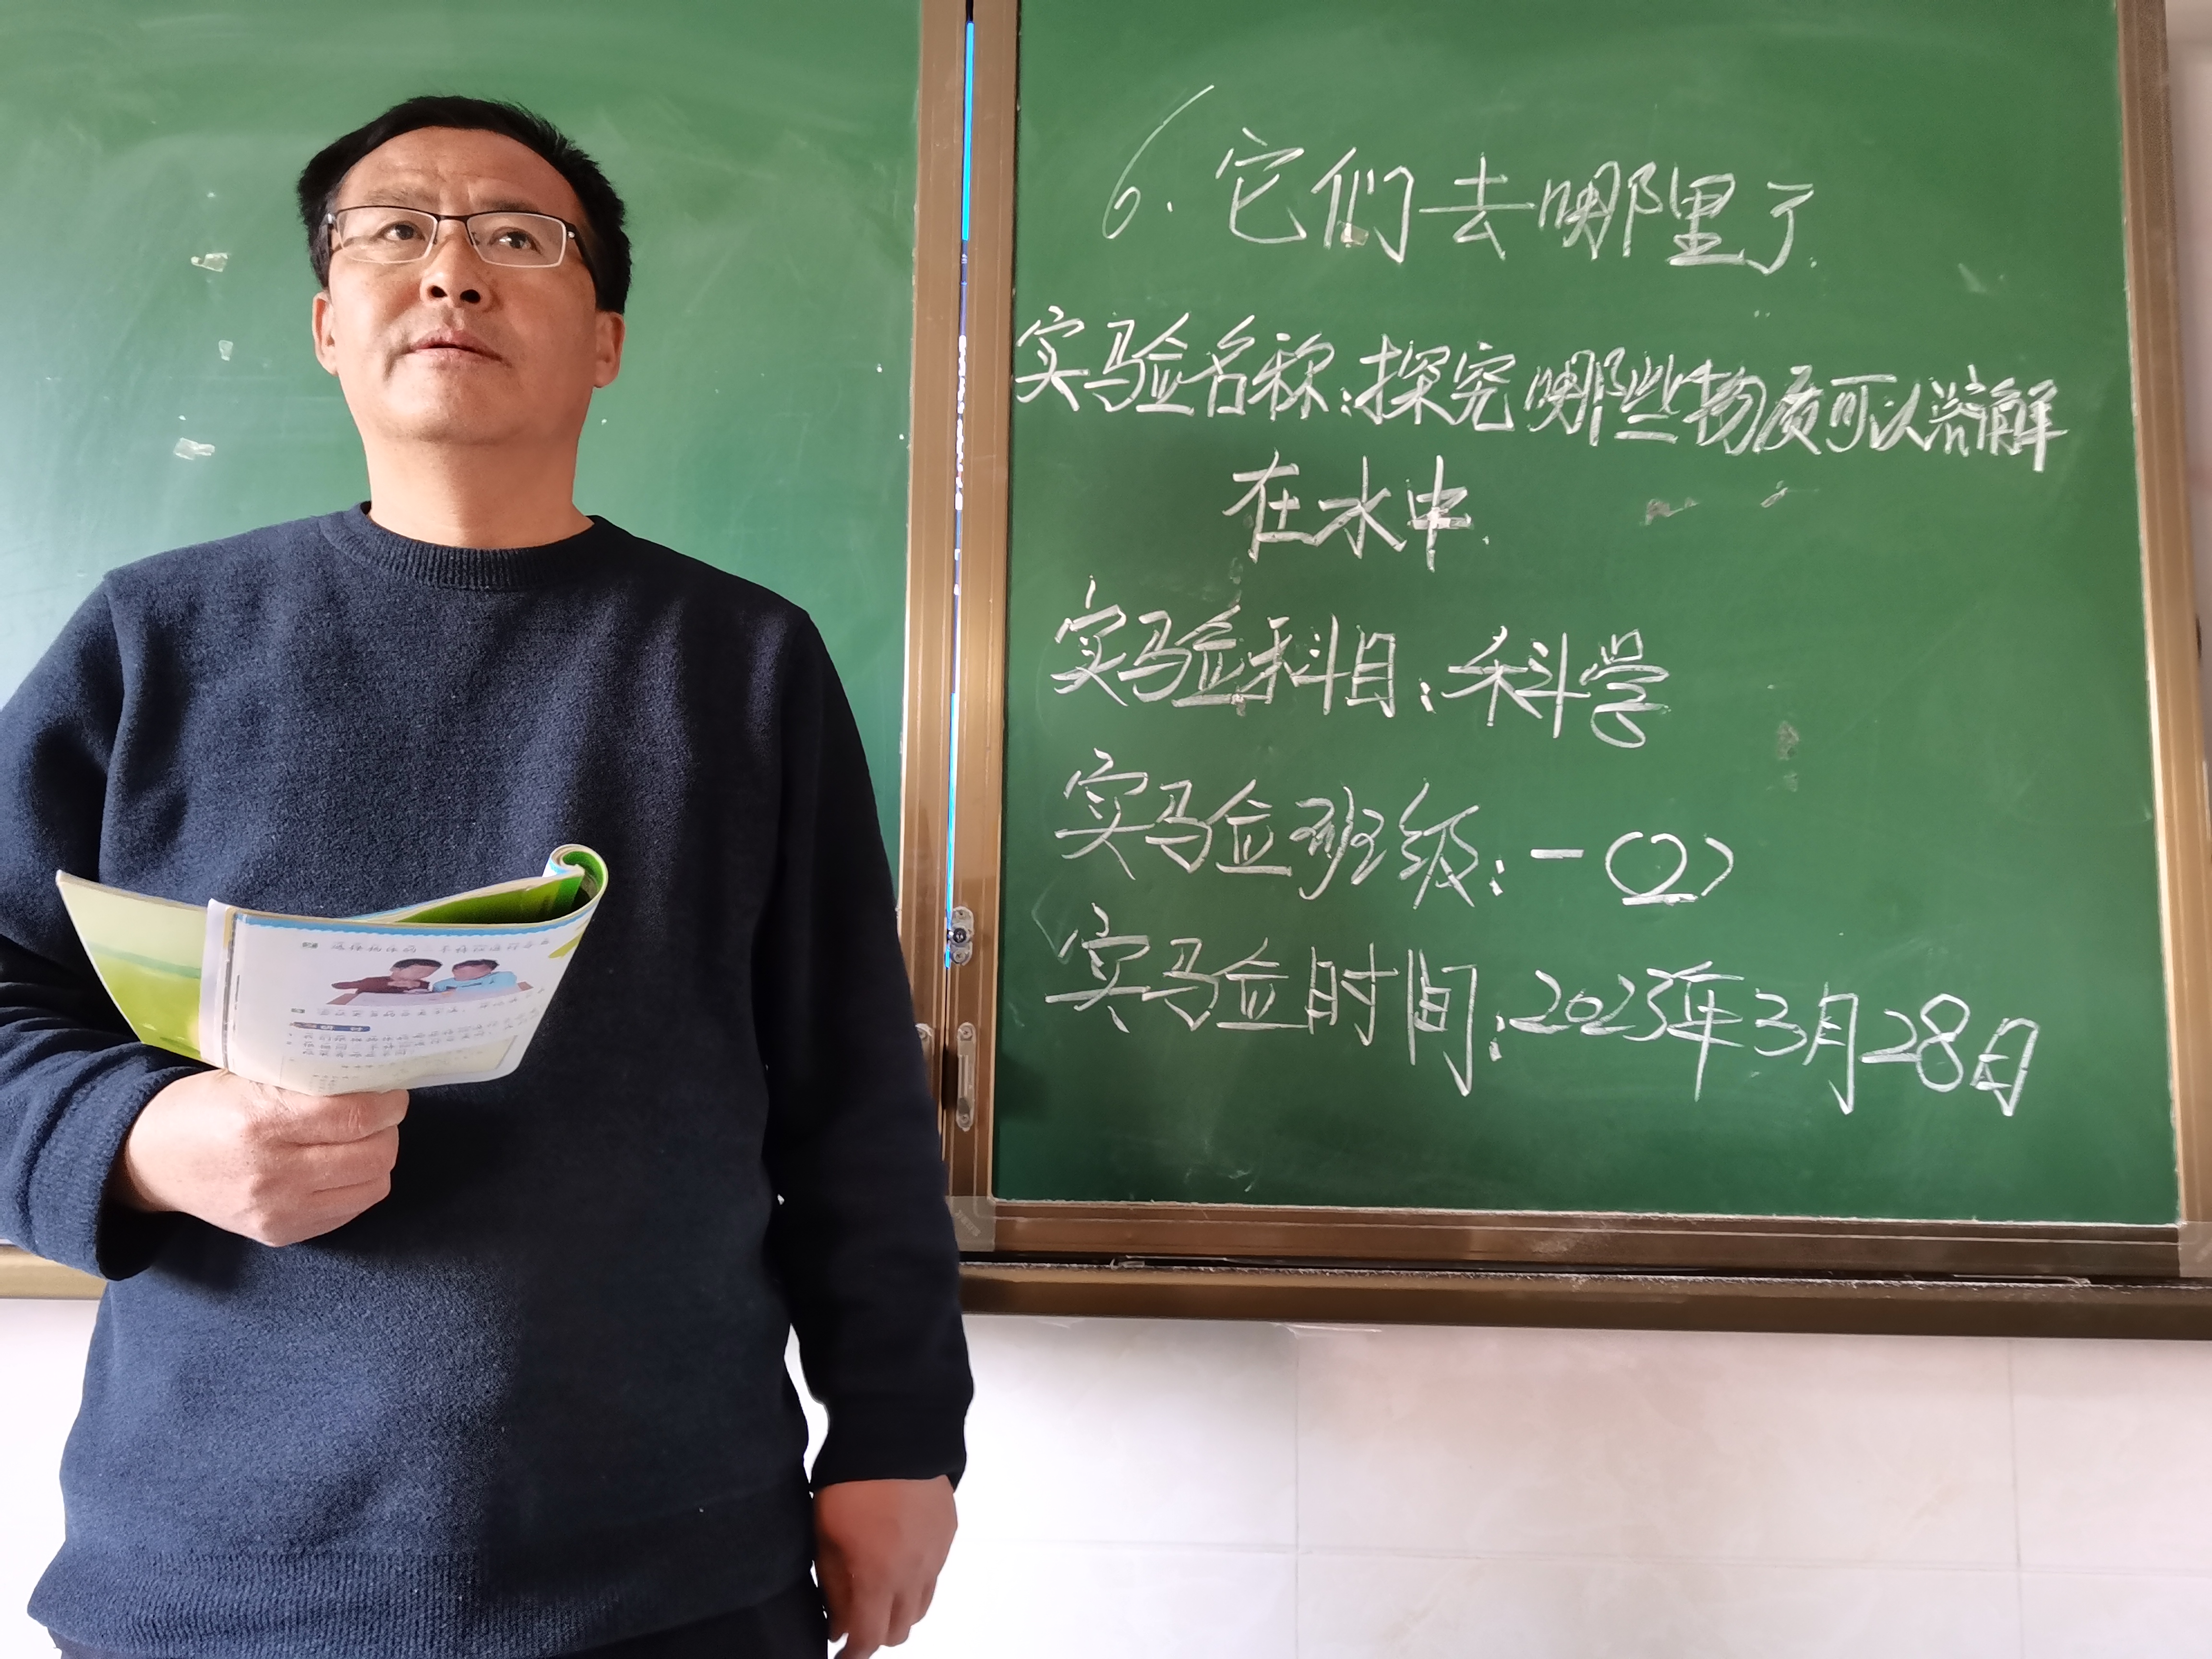 6.它们去哪里了.
实验名称:探究哪些物质可以溶解
在水中.
实验科目:科学
实验班级:一(2)
实验时间:2023年3月28日